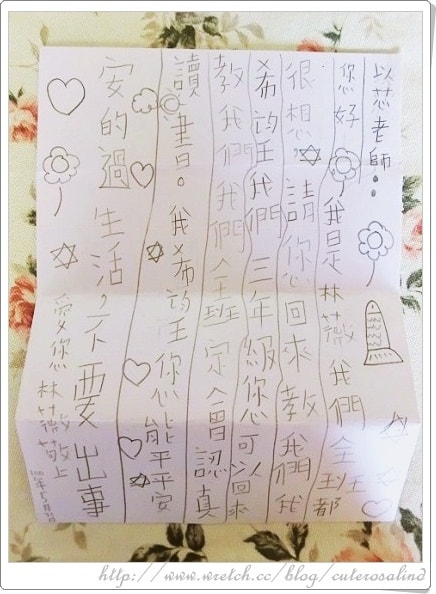 以芯老師：
您好 我是林薇 我們全班都
很想 請你回來教我們我
希望我們三年級您可以回來
教我們我們全班定會認真
讀書。我希望您能平平安
安的過生活,不要出事
愛您
林薇筠敬上
http://www.wretch.cc/blog/cuterosalind